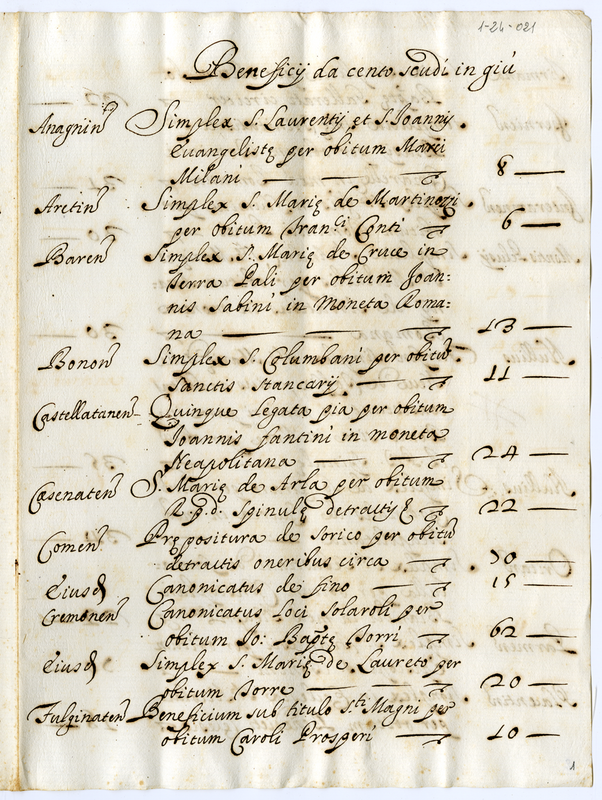 1-24-021
Beneficij da cento scudi in giù
Anagnin̄ Simplex S. Laurentij et S. Joannis
Evangelistę per obitum Marci
Milani 8
Aretin̄ Simplex S. Marię de Martinozzi
per obitum Franci Conti 6
Baren̄ Simplex S. Marię de Cruce in
Terra Pali per obitum Joan:
nis Sabini in moneta Roma:
na 13
Bonon̄ Simplex S. Columbani per obitū
Sanctis Stancarij 11
Castellatanen̄ Quinque Legata pia per obitum
Joannis fantini in moneta
Neapolitana 24
Cæsenaten̄ S. Marię de Arla per obitum
R. p. d. Spinulę detractis 22
Comen̄ Prępositura de Sorico per obitū
detractis oneribus circa 70
Eiusd Canonicatus de fino 15
Cremonen̄ Canonicatus Loci Solaroli per
obitum Jo: Baptę Torri 62
Eiusd Simplex S. Marię de Laureto per
obitum Torre 20
Fulginaten̄ Beneficium sub titulo Sti Magni per
obitum Caroli Prosperi 10
1